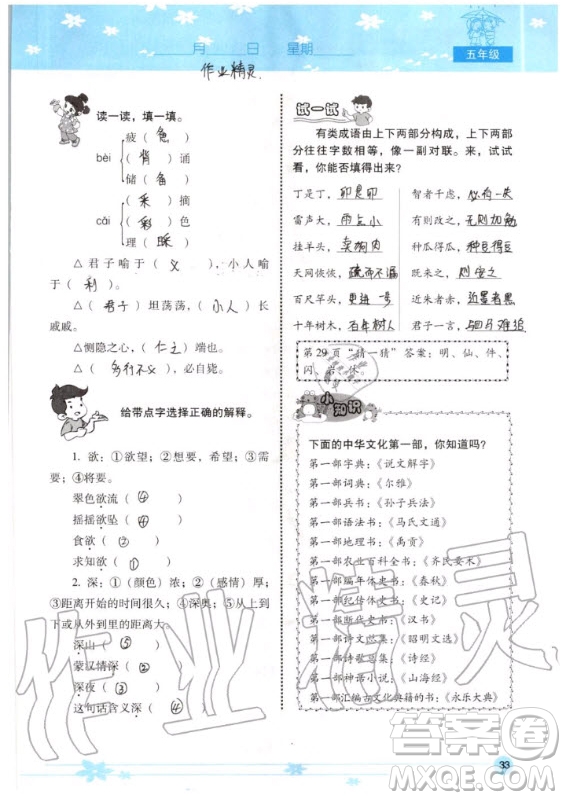 月 日 星期
五年级
作业精灵
读一读，填一填。
疲（惫）
bèi （背）诵
储（备）
（采）摘
cǎi （彩）色
理（睬）
△君子喻于（义），小人喻
于（利）。
△（君子）坦荡荡，（小人）长
戚戚。
△恻隐之心，（仁之）端也。
△（多行不义），必自毙。
给带点字选择正确的解释。
1. 欲：①欲望；②想要，希望；③需
要；④将要。
翠色欲流（④）
摇摇欲坠（④）
食欲（①）
求知欲（①）
2. 深：①（颜色）浓；②（感情）厚；
③距离开始的时间很久；④深奥；⑤从上到下
或从外到里的距离大。
深山（⑤）
蒙汉情深（②）
深夜（③）
这句话含义深（④）
试一试
有类成语由上下两部分构成，上下两部
分往往字数相等，像一副对联。来，试试
看，你能否填得出来？
丁是丁，卯是卯 智者千虑，必有一失
雷声大，雨点小 有则改之，无则加勉
挂羊头，卖狗肉 种瓜得瓜，种豆得豆
天网恢恢，疏而不漏 既来之，则安之
百尺竿头，更进一步 近朱者赤，近墨者黑
十年树木，百年树人 君子一言，驷马难追
第29页“猜一猜”答案：明、仙、件、
小知识
下面的中华文化第一部，你知道吗？
第一部字典：《说文解字》
第一部词典：《尔雅》
第一部兵书：《孙子兵法》
第一部语法书：《马氏文通》
第一部地理书：《禹贡》
第一部农业百科全书：《齐民要术》
第一部编年体史书：《春秋》
第一部纪传体史书：《史记》
第一部断代史书：《汉书》
第一部诗文总集：《昭明文选》
第一部诗歌总集：《诗经》
第一部神话小说：《山海经》
第一部汇编古文化典籍的书：《永乐大典》
作业精灵
答案圈
MXQE.COM
33